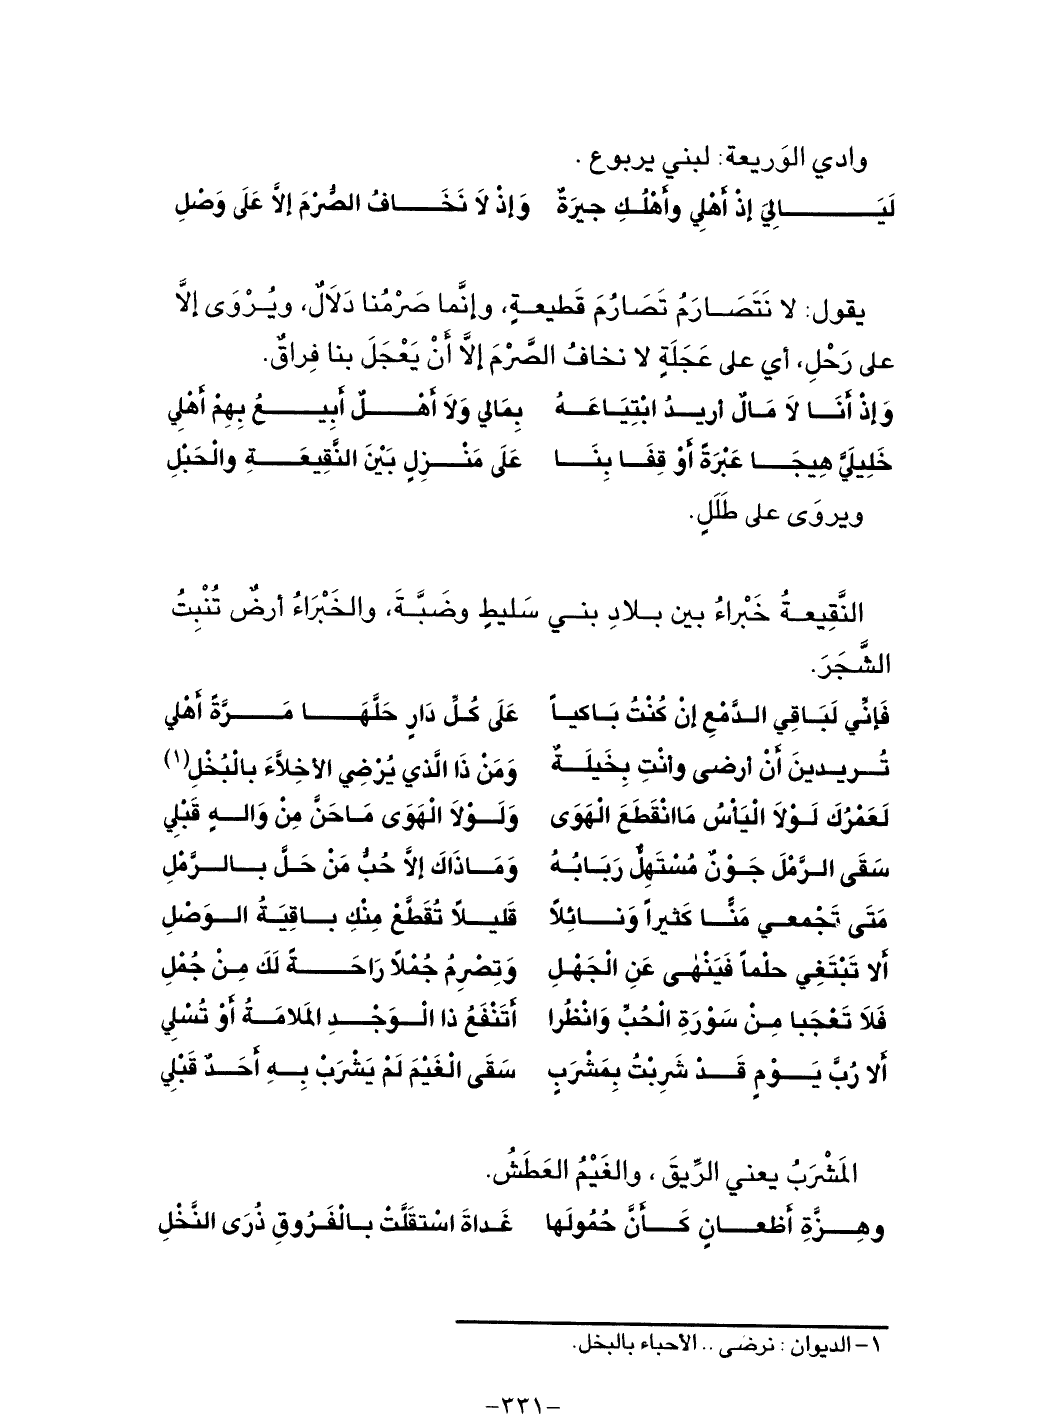 وادي الوَريعة: لبني يربوع .
لَيَـالِيَ إذْ أَهْلِي وأَهْلُـكِ جيرَةٌ    وَإذْ لَا نَخَـافُ الصُّرْمَ إلاَّ عَلَى وَصْلِ
يقول: لا نَتَصَـارَمُ تَصَارُمَ قَطيعـةٍ، وإنَّما صَرْمُنا دَلَالٌ، ويُـرْوَى إلاَّ
على رَحْلِ، أي على عَجَلَةٍ لا نخافُ الصَّرْمَ إلاَّ أَنْ يَعْجَلَ بنا فِراقٌ.
وَإذْ أَنَـا لاَ مَـالٌ أريـدُ ابْتِيَـاعَـهُ    بِمَالي وَلاَ أَهْـلٌ أَبِيـعُ بِهِمْ أَهْلي
خَلِيلَيَّ هِيجَـا عَبْرَةً أَوْ قِفَـا بِنَـا    عَلَى مَنْـزِلٍ بَيْنَ النَّقِيعَـةِ والْحَبْلِ
ويروَى على طَلَلٍ.
النَّقِيعـةُ خَبْراءُ بين بـلادِ بنـي سَليطٍ وضَبَّـةَ، والخَبْرَاءُ أرضٌ تُنْبِتُ
الشَّجَرَ.
فَإنِّي لَبَـاقِي الـدَّمْعِ إنْ كُنْتُ بَـاكيـاً    عَلَى كُـلِّ دَارٍ حَلَّهَـا مَـرَّةً أَهْلي
تُـريـدينَ أَنْ أرضى وأنْتِ بِخَيلَـةٌ    وَمَنْ ذَا الَّذي يُرْضِي الأخِلاَّءَ بالْبُخْلِ(١)
لَعَمْرُكَ لَـوْلاَ الْيَأْسُ مَاانْقَطَعَ الْهَوَى    وَلَـوْلاَ الْهَوَى مَـاحَنَّ مِنْ وَالـهٍ قَبْلي
سَقَى الـرَّمْلَ جَـوْنٌ مُسْتَهِلٌّ رَبَـابُـهُ    وَمَـاذَاكَ إلاَّ حُبُّ مَنْ حَـلَّ بـالـرَّمْلِ
مَتَى تَجْمعـي مَنًّـا كَثيراً وَنـائِلاً    قَليـلاً تُقَطَّعْ مِنْكِ بـاقِيَةُ الـوَصْلِ
أَلا تَبْتَغِي حلْماً فَيَنْهٰـى عَنِ الْجَهْلِ    وَتِصْرِمُ جُمْلاً رَاحَـةً لَكَ مِـنْ جُمْلِ
فَلاَ تَعْجَبا مِـنْ سَوْرَةِ الْحُبِّ وَانْظُرا    أَتَنْفَعُ ذا الْـوَجْـدِ المَلامَـةُ أَوْ تُسْلي
أَلا رُبَّ يَـوْمٍ قَـدْ شَرِبْتُ بِمَشْرَبٍ    سَقَى الْغَيْمَ لَمْ يَشْرَبْ بِـهِ أَحَـدٌ قَبْلي
المَشْرَبُ يعني الرِّيقَ ، والغَيْمُ العَطَشُ.
وهِـزَّةِ أَظعـانٍ كَـأَنَّ حُمُولَها    غَداةَ اسْتقَلَّتْ بـالْفَرُوقِ ذُرَى النَّخْلِ
١– الديوان : نرضى .. الأحباء بالبخل.
–٣٣١–